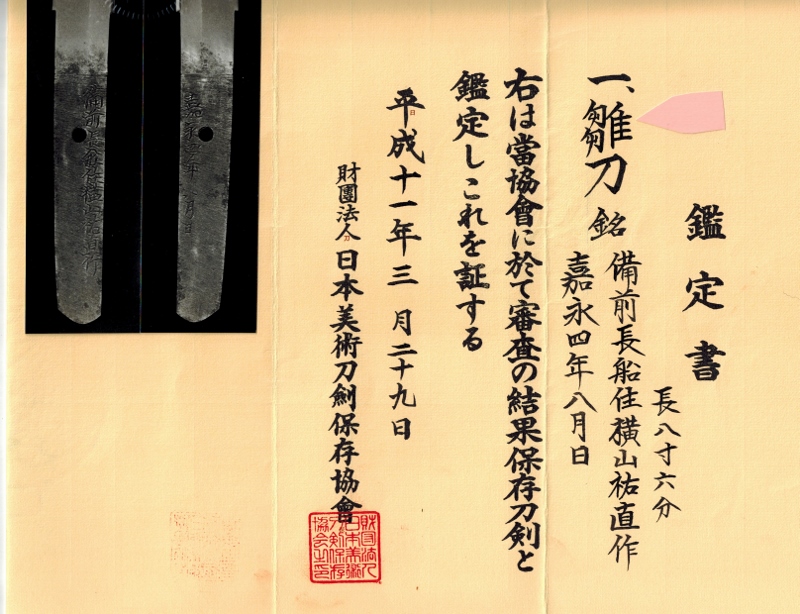 鑑定書
長八寸六分
一、雛刀 銘 備前長船住横山祐直作
嘉永四年八月日
右は當協會に於て審査の結果保存刀剣と
鑑定しこれを証する
平成十一年三月二十九日
財團法人日本美術刀剣保存協會
財団法人日本美術刀剣保存協会之印
嘉永四年八月日
備前長船住横山祐直作